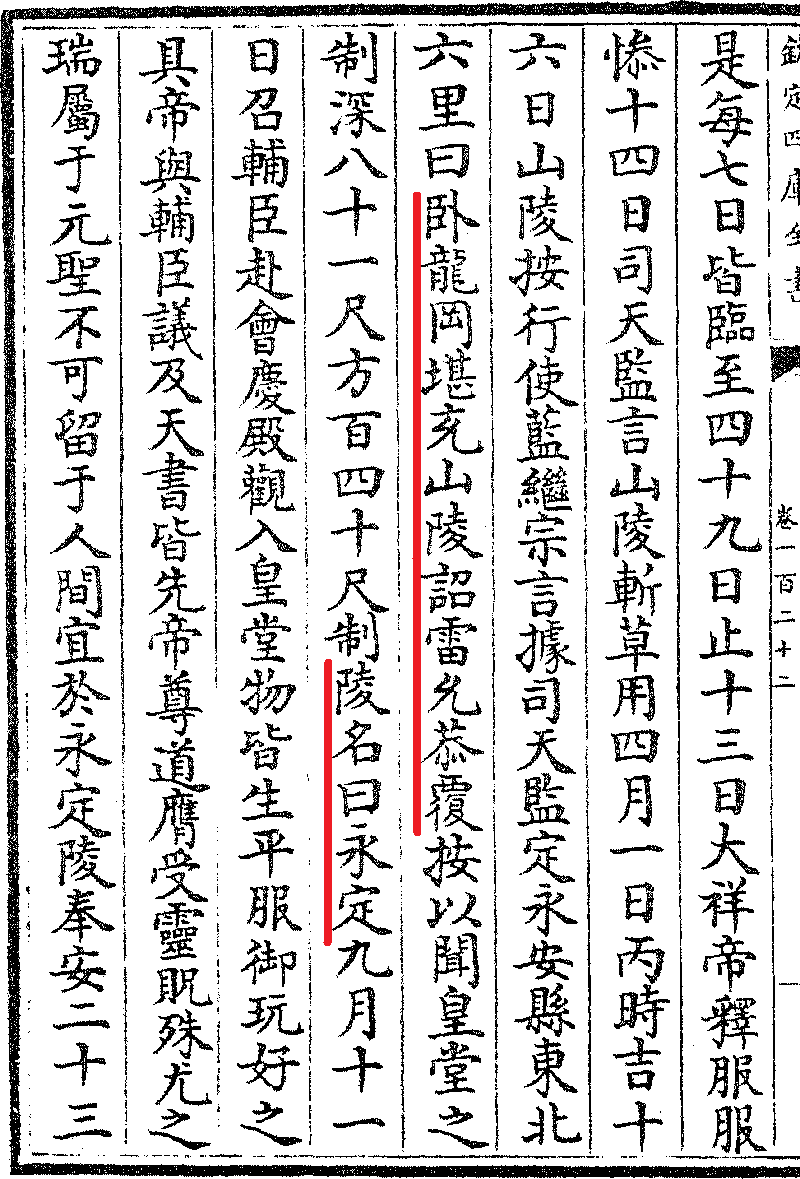 欽定四庫全書
卷一百二十二
是每七日皆臨至四十九日止十三日大祥帝釋服服
慘十四日司天監言山陵斬草用四月一日丙時吉十
六日山陵按行使藍繼宗言據司天監定永安縣東北
六里曰卧龍岡堪充山陵詔雷允恭覆按以聞皇堂之
制深八十一尺方百四十尺制陵名曰永定九月十一
日召輔臣赴會慶殿觀入皇堂物皆生平服御玩好之
具帝與輔臣議及天書皆先帝尊道膺受靈貺殊尤之
瑞屬于元聖不可留于人間宜於永定陵奉安二十三